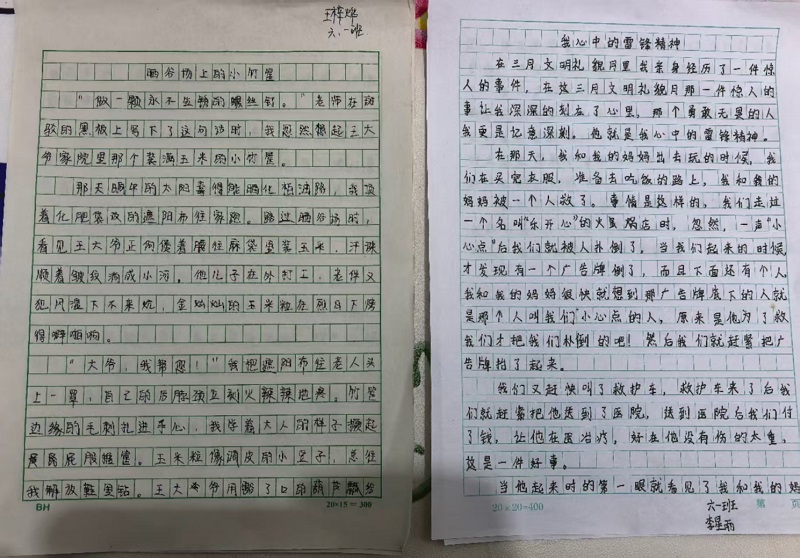 王梓烨
六、一班
晒谷场上的小竹筐
“做一颗永不生锈的螺丝钉。”老师在班
级的黑板上写下了这句话时，我忽然想起王大
爷家院里那个装满玉米的小竹筐。
那天晌午的太阳毒得能晒化柏油路，我顶
着化肥袋改的遮阳布往家跑。路过晒谷场时，
看见王大爷正佝偻着腰往麻袋里装玉米，汗珠
顺着皱纹淌成小河。他儿子在外打工，老伴又
犯风湿下不来炕，金灿灿的玉米粒在烈日下烤
得噼啪响。
“大爷，我帮您！”我把遮阳布往老人头
上一罩，自己的后脖颈立刻火辣辣地疼。竹筐
边缘的毛刺扎进手心，我学着大人的样子撅起
屁股推筐。玉米粒像调皮的小豆子，总往
我解放鞋里钻。王大爷用豁了口的葫芦瓢给
BH
20×15=300
我心中的雷锋精神
在三月文明礼貌月里我亲身经历了一件惊
人的事件，在这三月文明礼貌月那一件惊人的
事让我深深的刻在了心里，那个勇敢无畏的人
我更是记忆深刻。他就是我心中的雷锋精神。
在那天，我和我的妈妈出去玩的时候，我
们在买完衣服，准备去吃饭的路上，我和我的
妈妈被一个人救了。事情是这样的，我们走过
一个名叫“乐开心”的火锅店时，忽然，一声“小
心点”后我们就被人扑倒了，当我们起来的时候
才发现有一个广告牌倒了，而且下面还有个人
我和我的妈妈很快就想到那广告牌底下的人就
是那个人叫我们“小心点的人，原来是他为了救
我们才把我们扑倒的吧！然后我们就赶紧把广
告牌抬了起来。
我们又赶快叫了救护车，救护车来了后我
们就赶紧把他送到了医院，送到医院后我们付
了钱，让他在医治疗，好在他没有伤的太重，
这是一件好事。
当他起来时的第一眼就看见了我和我的妈
20×20=400
六一班
第 页
李星雨